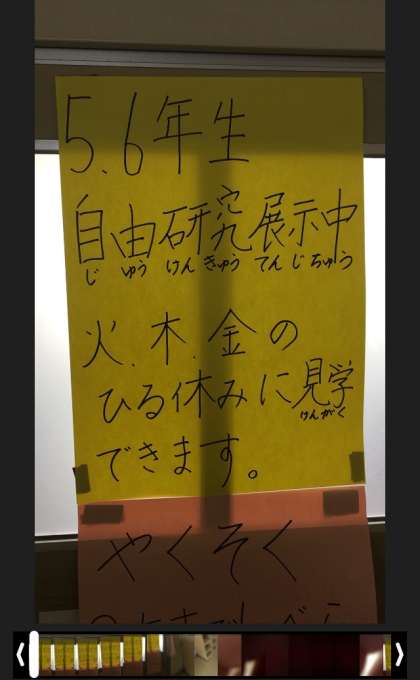 5.6年生
自由研究展示中
じ ゆう けん きゅう てん じ ちゅう
火.木.金の
ひる休みに見学
けんがく
できます。
やくそく